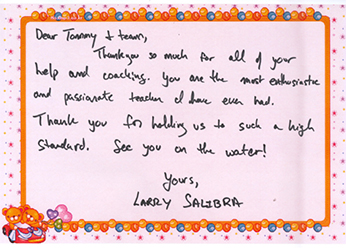 Dear Tammy & team,
Thank you so much for all of your
help and coaching. You are the most enthusiastic
and passionate teacher I have ever had.
Thank you for holding us to such a high
standard. See you on the water!
Yours,
LARRY SALIBRA